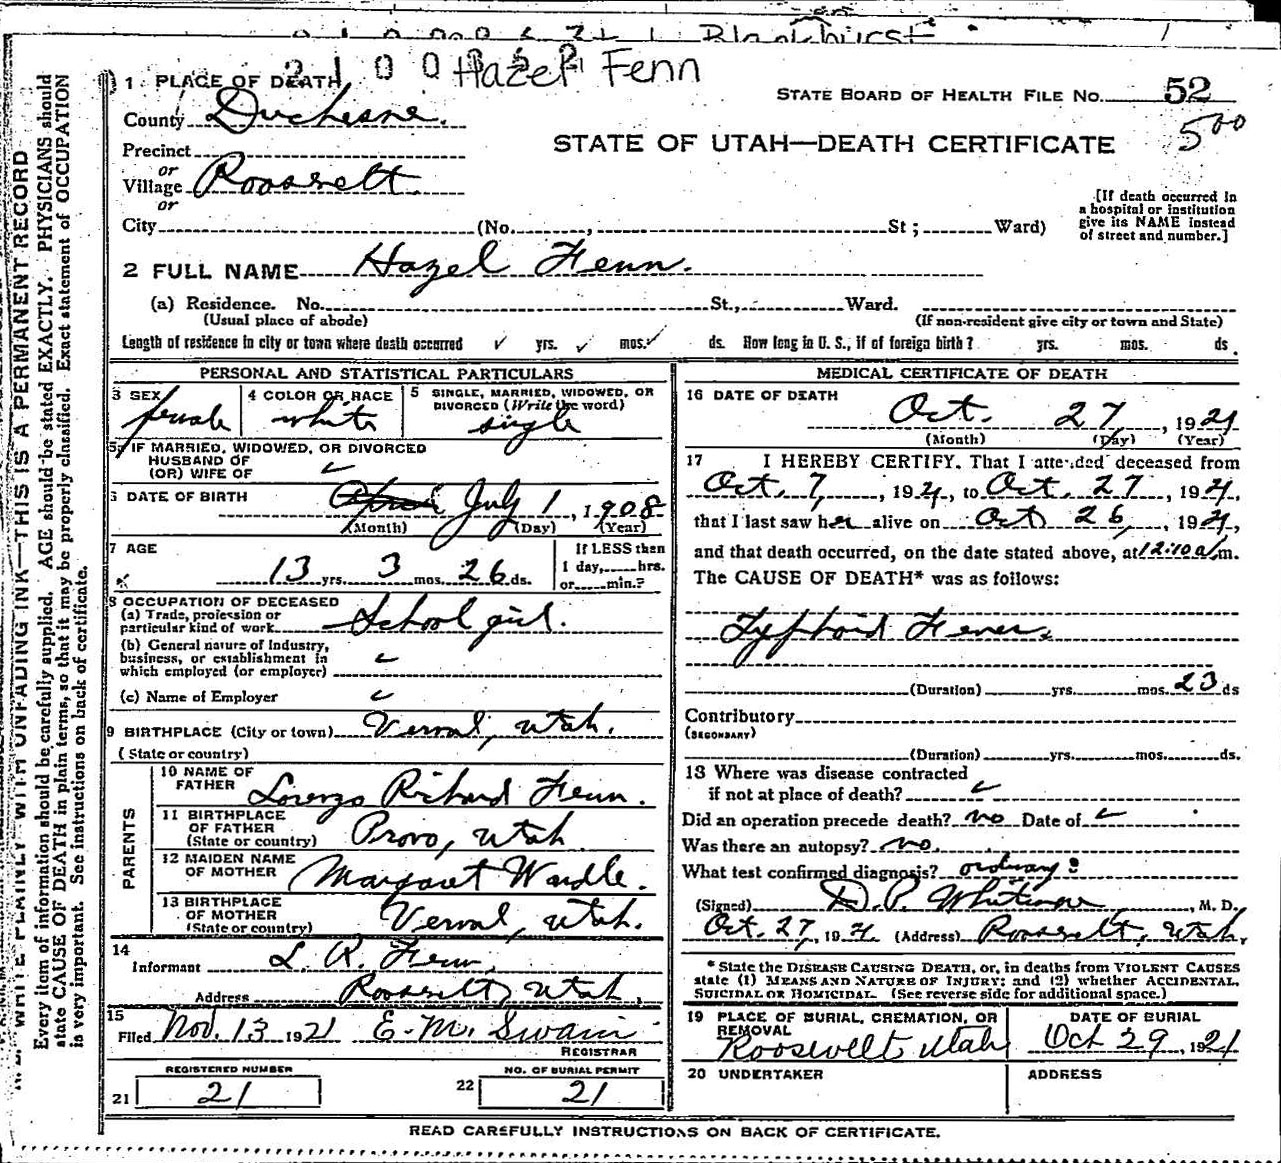 Blackhurst
2 1 0 0
Hazel Fenn
1 PLACE OF DEATH
County Duchesne.
STATE BOARD OF HEALTH FILE No. 52
500
STATE OF UTAH—DEATH CERTIFICATE
Precinct
or
Village Roosevelt.
or
[If death occurred in
a hospital or institution
give its NAME instead
of street and number.]
City (No. , St ; Ward)
2 FULL NAME Hazel Fenn.
(a) Residence. No. St., Ward.
(Usual place of abode) (If non-resident give city or town and State)
Length of residence in city or town where death occurred ✓ yrs. ✓ mos. ✓ ds. How long in U. S., if of foreign birth? yrs. mos. ds.
PERSONAL AND STATISTICAL PARTICULARS
3 SEX female
4 COLOR OR RACE white
5 SINGLE, MARRIED, WIDOWED, OR
DIVORCED (Write the word)
single
5a IF MARRIED, WIDOWED, OR DIVORCED
HUSBAND OF
(OR) WIFE OF ✓
6 DATE OF BIRTH July 1, 1908
(Month) (Day) (Year)
7 AGE
13 yrs. 3 mos. 26 ds.
If LESS than
1 day, hrs.
or min.?
8 OCCUPATION OF DECEASED
(a) Trade, profession or
particular kind of work School girl.
(b) General nature of Industry,
business, or establishment in
which employed (or employer) ✓
(c) Name of Employer ✓
9 BIRTHPLACE (City or town) Vernal, Utah.
(State or country)
PARENTS
10 NAME OF
FATHER Lorenzo Richard Fenn.
11 BIRTHPLACE
OF FATHER
(State or country) Provo, Utah
12 MAIDEN NAME
OF MOTHER Margaret Wardle.
13 BIRTHPLACE
OF MOTHER
(State or country) Vernal, Utah.
14
Informant L. R. Fenn,
Address Roosevelt, Utah.
15
Filed Nov. 13 1921 E. M. Swain
REGISTRAR
REGISTERED NUMBER
21 21
NO. OF BURIAL PERMIT
22 21
MEDICAL CERTIFICATE OF DEATH
16 DATE OF DEATH
Oct. 27, 1921
(Month) (Day) (Year)
17 I HEREBY CERTIFY, That I attended deceased from
Oct. 7, 1921, to Oct. 27, 1921,
that I last saw her alive on Oct 26, 1921,
and that death occurred, on the date stated above, at 12:10 a/m.
The CAUSE OF DEATH* was as follows:
Typhoid Fever.
(Duration) yrs. mos. 23 ds
Contributory
(SECONDARY)
(Duration) yrs. mos. ds.
13 Where was disease contracted
if not at place of death? ✓
Did an operation precede death? no Date of ✓
Was there an autopsy? no.
What test confirmed diagnosis? ordinary
(Signed) D. P. Whitmore, M. D.
Oct. 27, 1921. (Address) Roosevelt, Utah,
* State the DISEASE CAUSING DEATH, or, in deaths from VIOLENT CAUSES
state (1) MEANS AND NATURE OF INJURY; and (2) whether ACCIDENTAL,
SUICIDAL OR HOMICIDAL. (See reverse side for additional space.)
19 PLACE OF BURIAL, CREMATION, OR
REMOVAL
Roosevelt Utah
DATE OF BURIAL
Oct 29, 1921
20 UNDERTAKER
ADDRESS
READ CAREFULLY INSTRUCTIONS ON BACK OF CERTIFICATE.
WRITE PLAINLY WITH UNFADING INK—THIS IS A PERMANENT RECORD
Every item of information should be carefully supplied. AGE should be stated EXACTLY. PHYSICIANS should
state CAUSE OF DEATH in plain terms, so that it may be properly classified. Exact statement of OCCUPATION
is very important. See instructions on back of certificate.